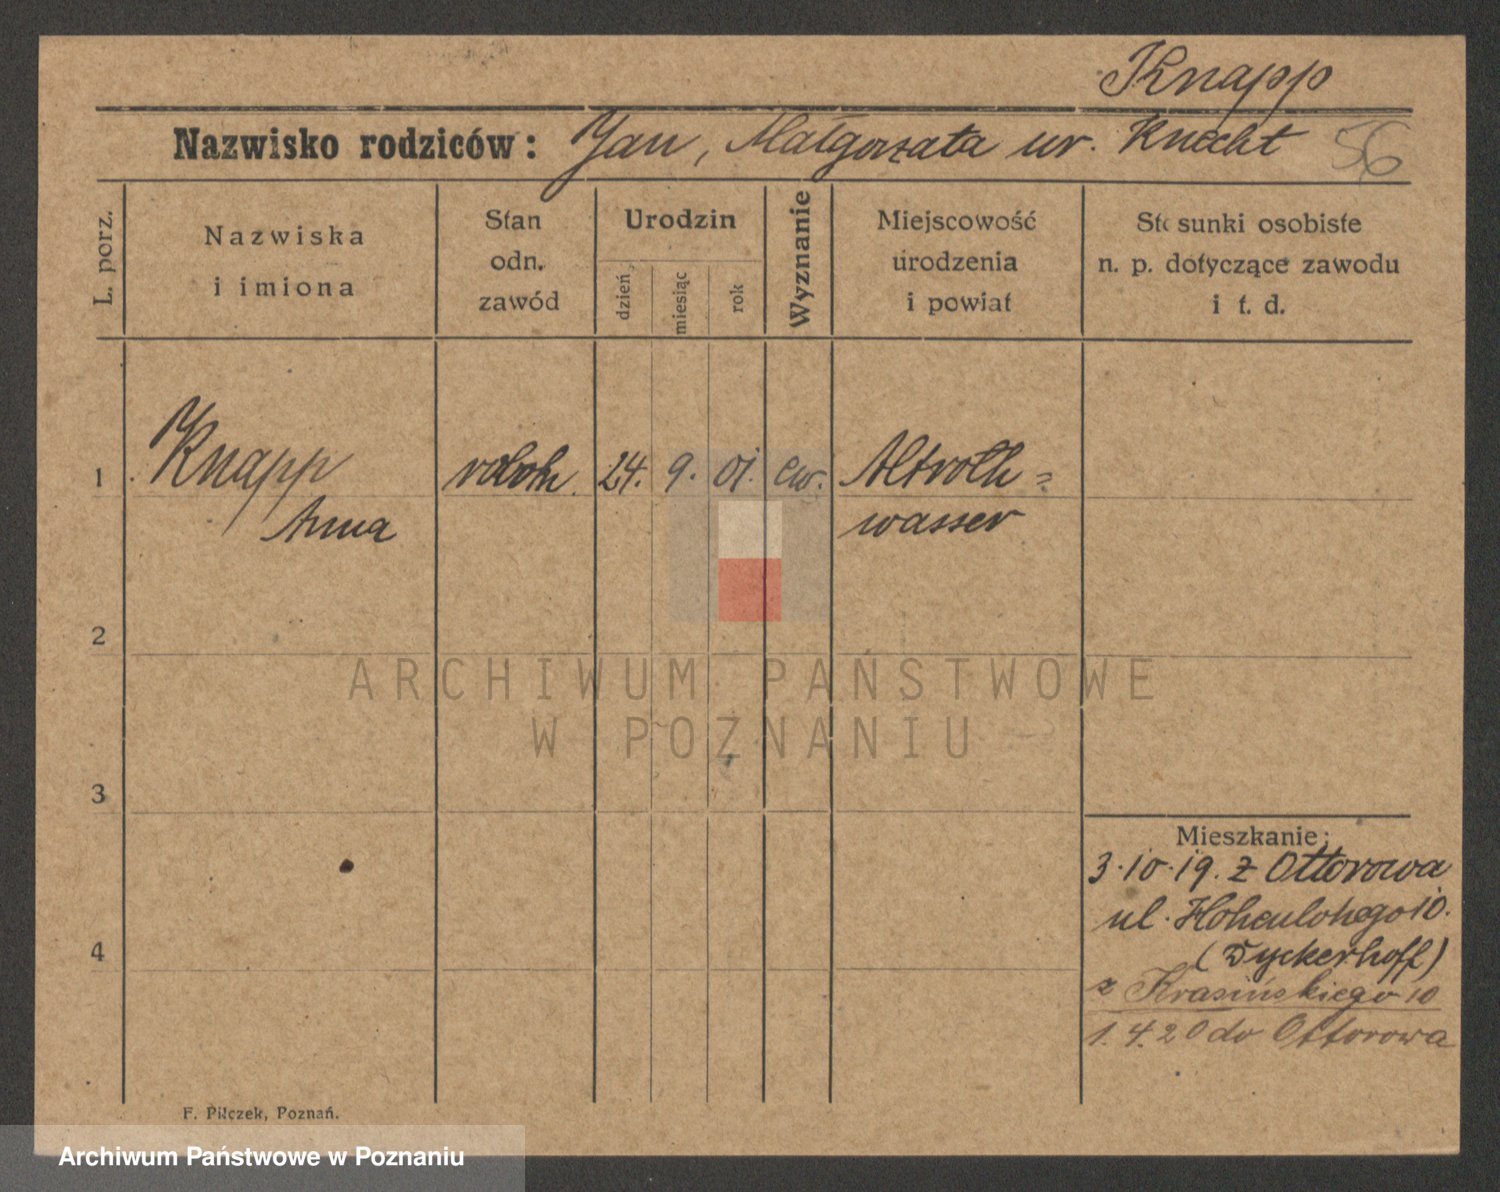 Knapp
Nazwisko rodziców: Jan, Małgorzata ur. Knecht 56
L. porz.
Nazwiska
i imiona
Stan
odn.
zawód
Urodzin
dzień
miesiąc
rok
Wyznanie
Miejscowość
urodzenia
i powiat
Stosunki osobiste
n. p. dotyczące zawodu
i t. d.
1 Knapp robotn. 24. 9. 01. ew. Altroth=
Anna wasser
2
ARCHIWUM PAŃSTWOWE
W POZNANIU
3
Mieszkanie:
3.10.19. z Ottorowa
ul. Hohenlohego 10.
4 (Dyckerhoff)
z Krasińskiego 10
1.4.20 do Ottorowa
F. Pilczek, Poznań.
Archiwum Państwowe w Poznaniu